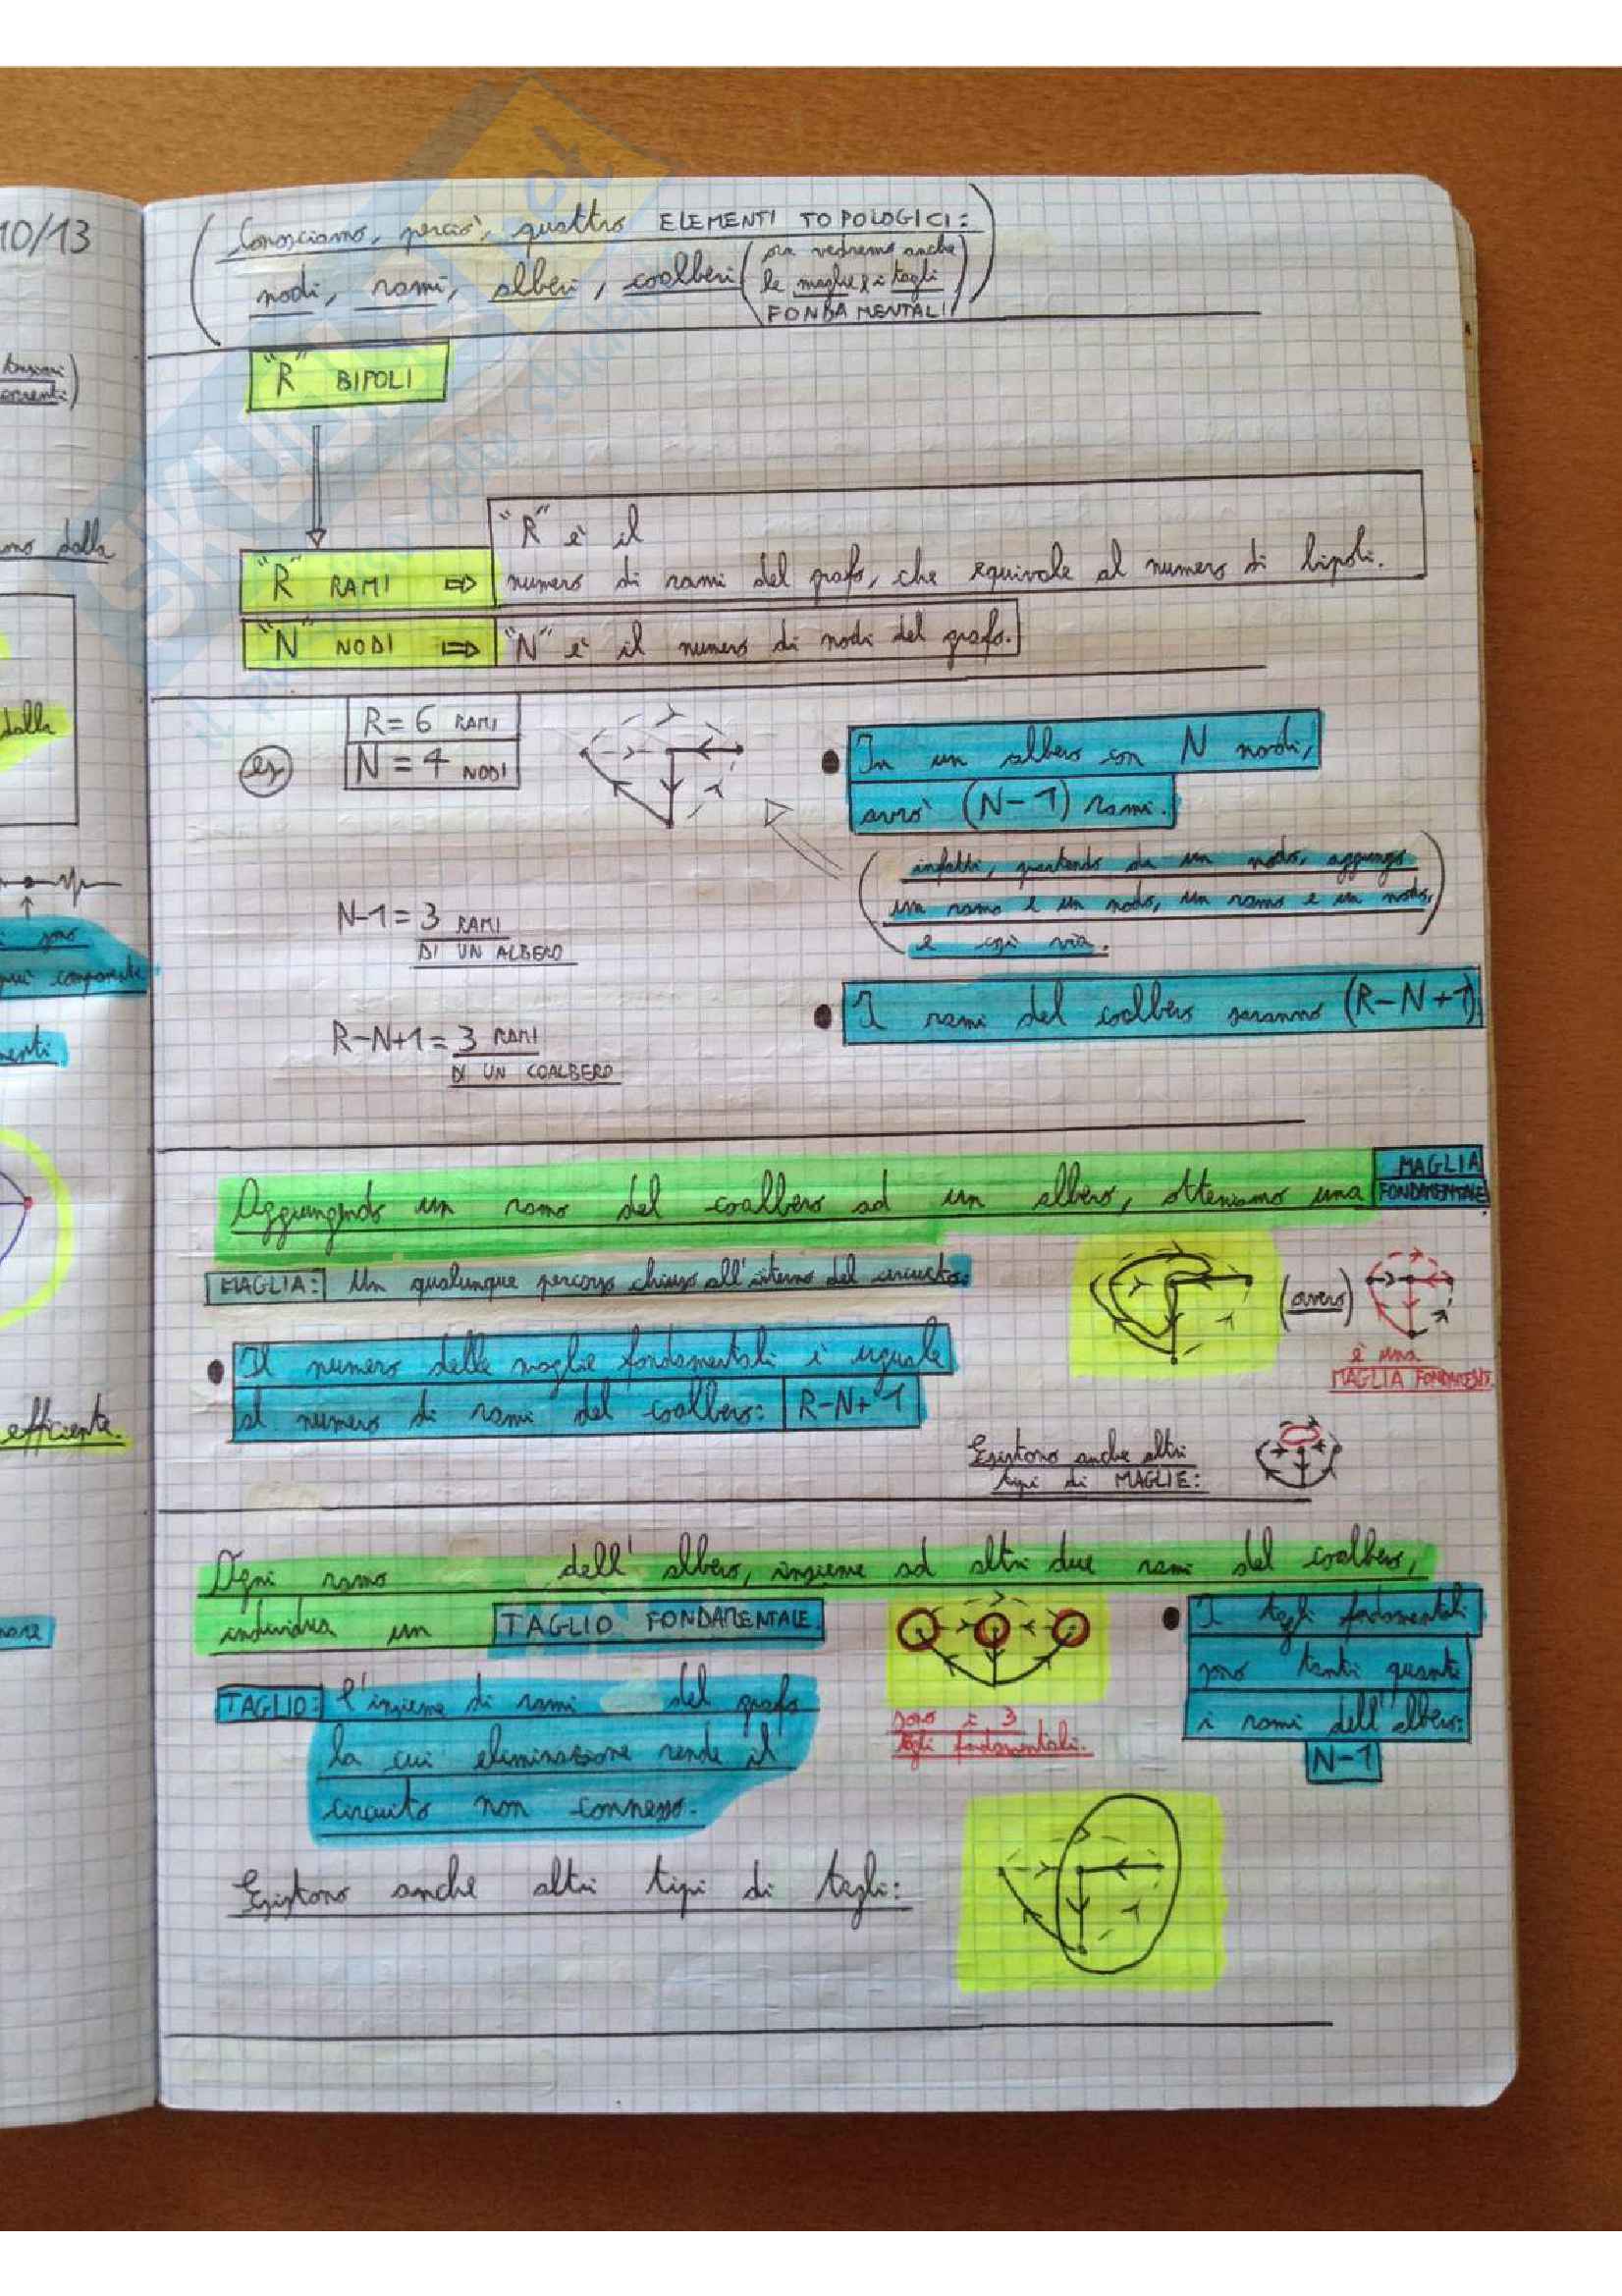 10/13
Conosciamo, perciò, quattro ELEMENTI TOPOLOGICI:
nodi, rami, alberi, coalberi (ora vedremo anche
le maglie e i tagli
FONDAMENTALI)
"R" BIPOLI
"R" è il
"R" RAMI ⇒ numero di rami del grafo, che equivale al numero di bipoli.
"N" NODI ⇒ "N" è il numero di nodi del grafo.
es
R = 6 RAMI
N = 4 NODI
• In un albero con N nodi,
avrò (N-1) rami.
(infatti, partendo da un nodo, aggiungo
un ramo e un nodo, un ramo e un nodo,
e così via.)
N-1 = 3 RAMI
DI UN ALBERO
• I rami del coalbero saranno (R-N+1)
R-N+1 = 3 RAMI
DI UN COALBERO
Aggiungendo un ramo del coalbero ad un albero, otteniamo una MAGLIA
FONDAMENTALE
MAGLIA: Un qualunque percorso chiuso all'interno del circuito.
(ovvero)
è una
MAGLIA FONDAMENT.
• Il numero delle maglie fondamentali è uguale
al numero di rami del coalbero: R-N+1
Esistono anche altri
tipi di MAGLIE:
Ogni ramo dell'albero, insieme ad altri due rami del coalbero,
individua un TAGLIO FONDAMENTALE.
TAGLIO: l'insieme di rami del grafo
la cui eliminazione rende il
circuito non connesso.
sono i 3
tagli fondamentali.
• I tagli fondamentali
sono tanti quanti
i rami dell'albero:
N-1
Esistono anche altri tipi di tagli:
dalla
dalla
efficiente.